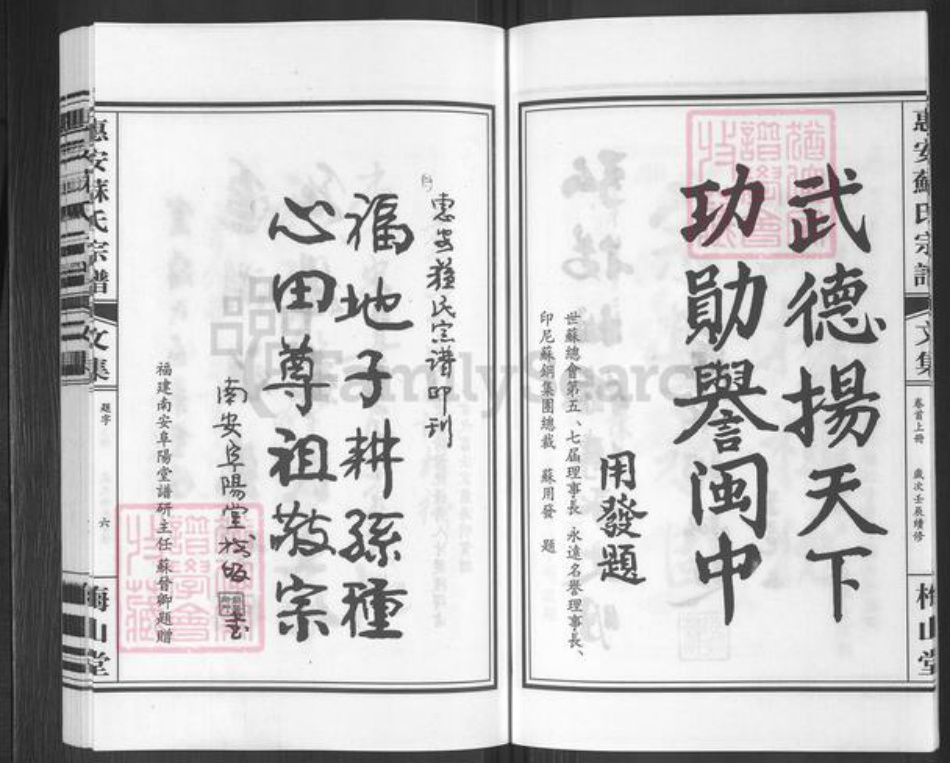 惠安蘇氏宗譜
文集
卷首上冊
歲次壬辰續修
梅山堂
武德揚天下
功勛譽閩中
用發題
世蘇總會第五、七屆理事長、永遠名譽理事長、
印尼蘇鋼集團總裁 蘇用發 題
惠安蘇氏宗譜印刊
福地子耕孫種
心田尊祖敬宗
南安阜陽堂
福建南安阜陽堂譜研主任 蘇晉卿題贈
惠安蘇氏宗譜
文集
題字
六
梅山堂
FamilySearch